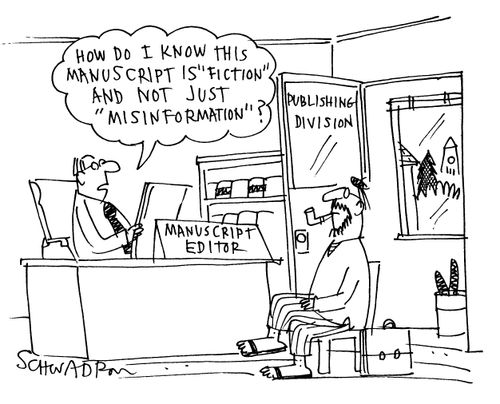 HOW DO I KNOW THIS
MANUSCRIPT IS "FICTION"
AND NOT JUST
"MISINFORMATION"?
PUBLISHING
DIVISION
MANUSCRIPT
EDITOR
SCHWADRON